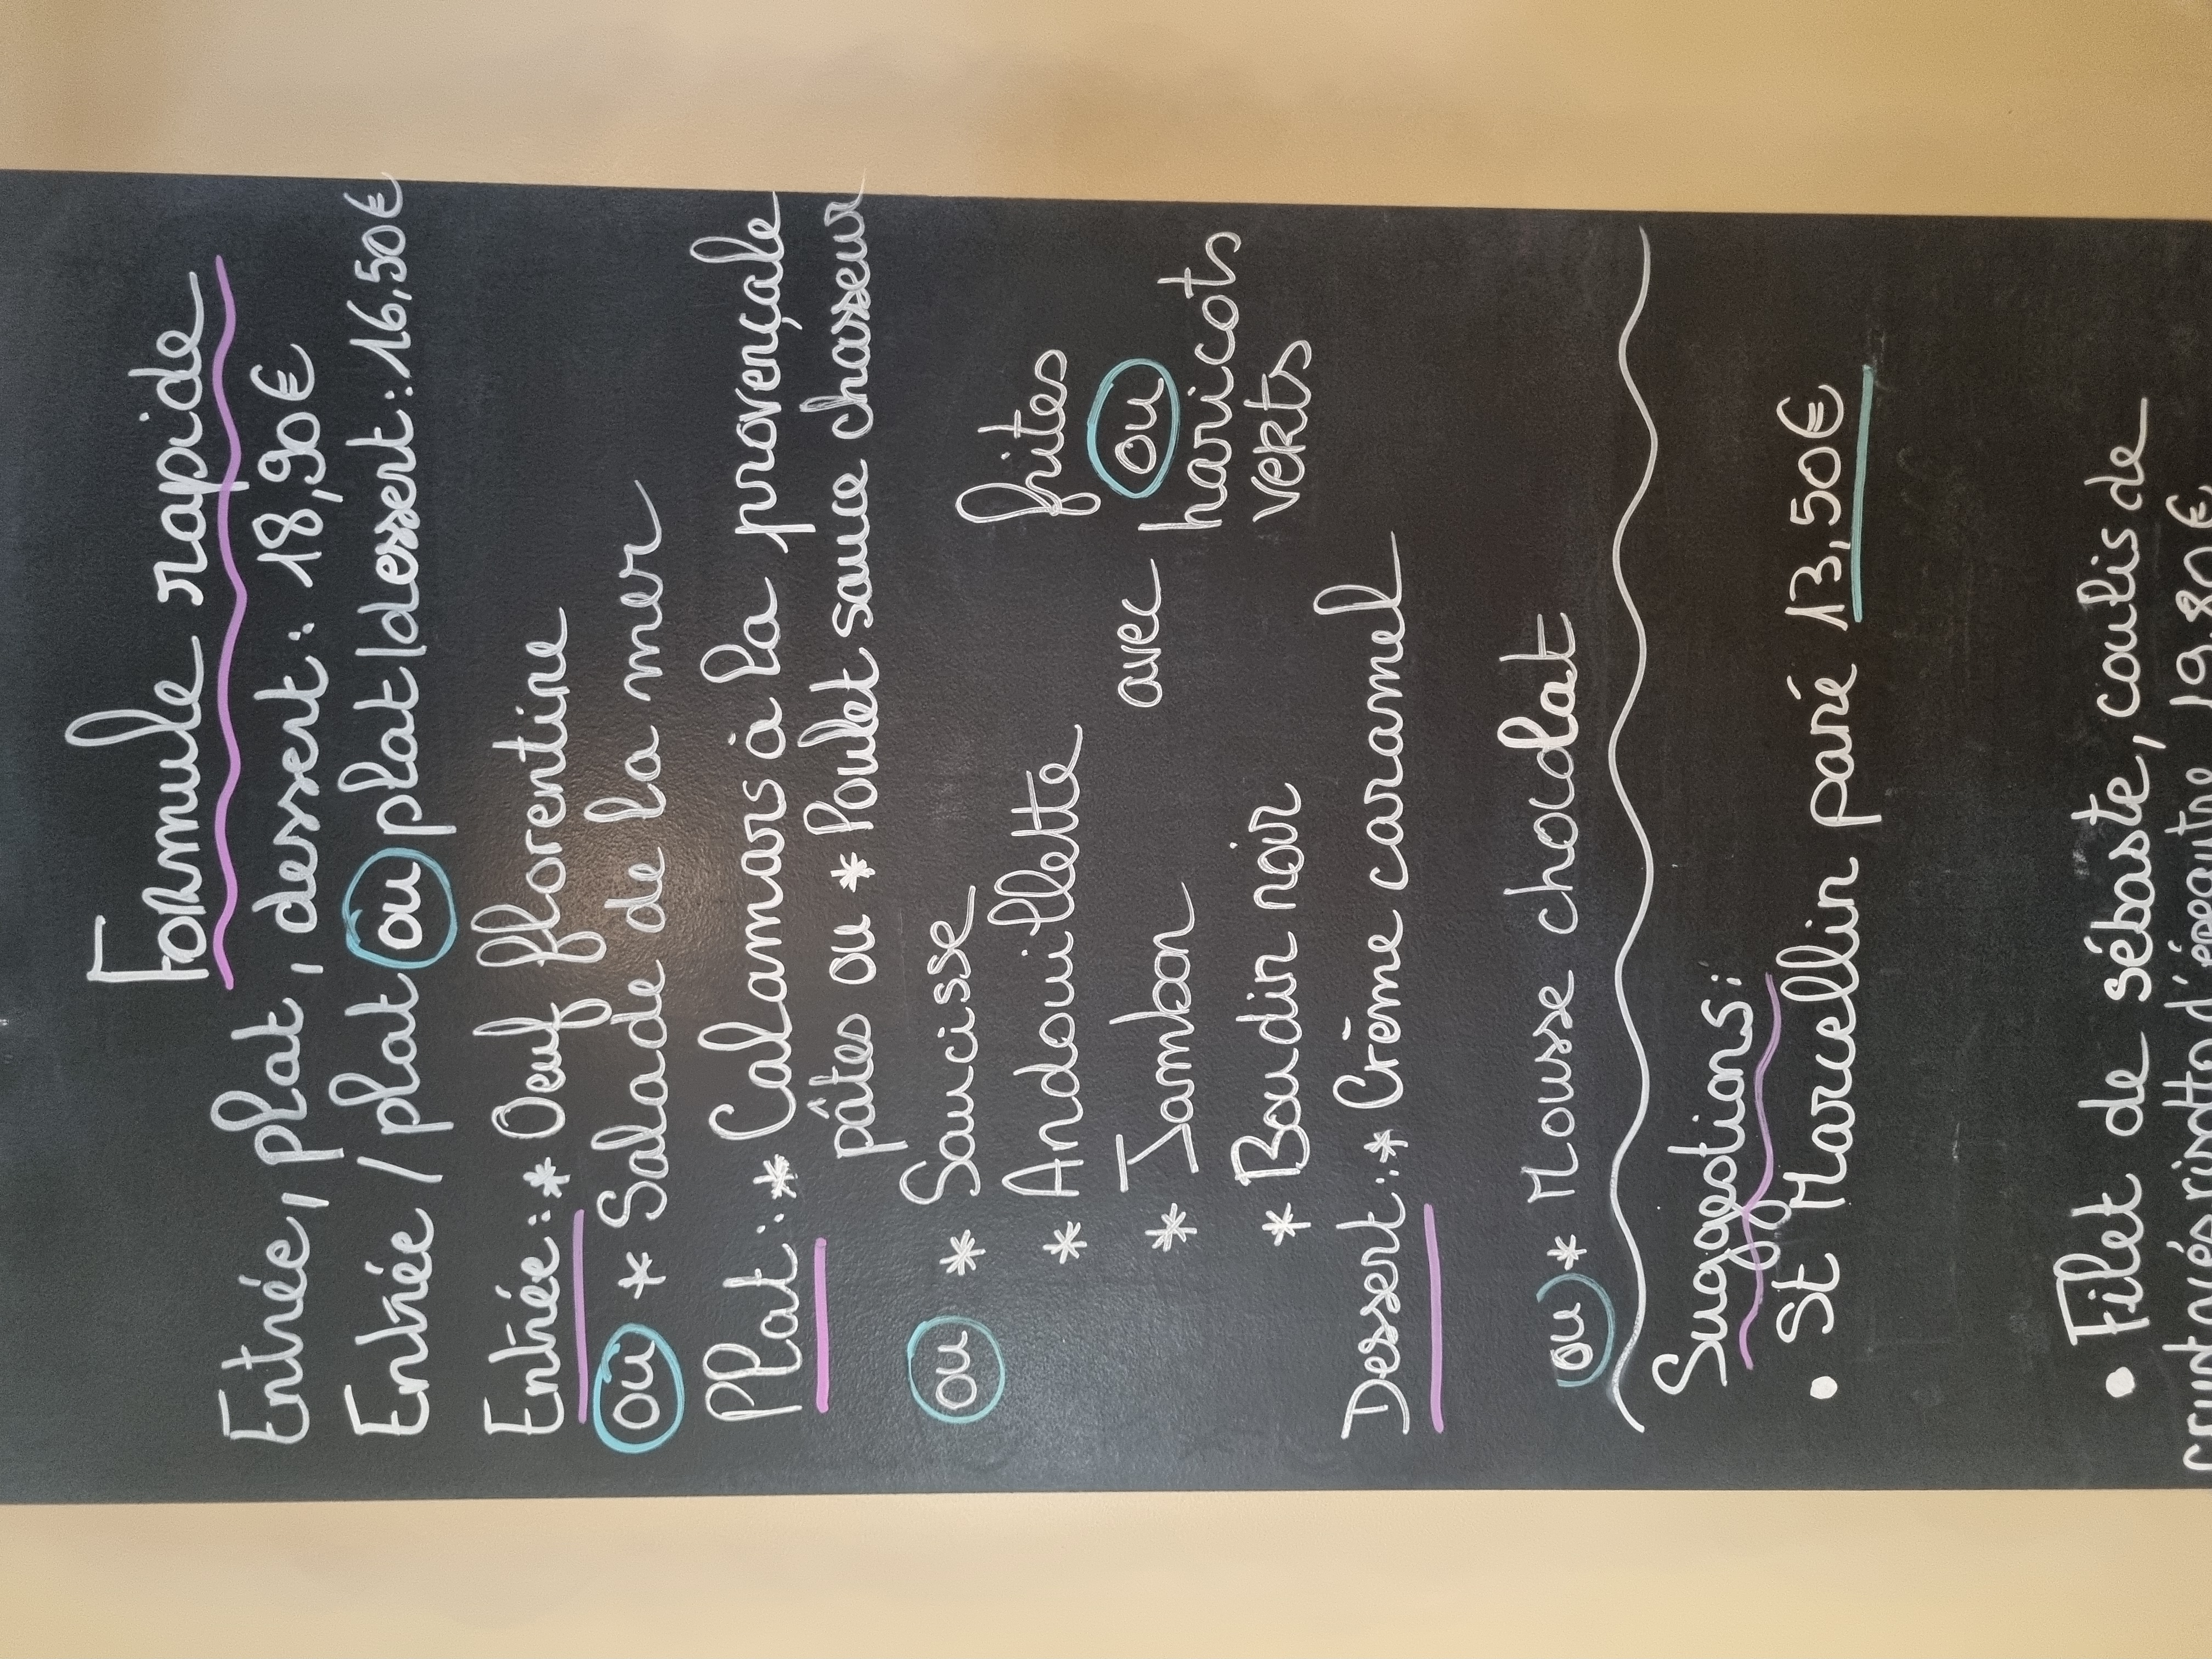 Formule rapide
Entrée, plat, dessert : 18,90€
Entrée / plat ou plat/dessert : 16,50€
Entrée : * Oeuf florentine
ou * Salade de la mer
Plat : * Calamars à la provençale
pâtes ou * Poulet sauce chasseur
ou * Saucisse
* Andouillette
* Jambon
* Boudin noir
avec
frites
ou
haricots
verts
Dessert : * Crème caramel
ou * Mousse chocolat
Suggestions :
• St Marcellin pané 13,50€
• Filet de sébaste, coulis de